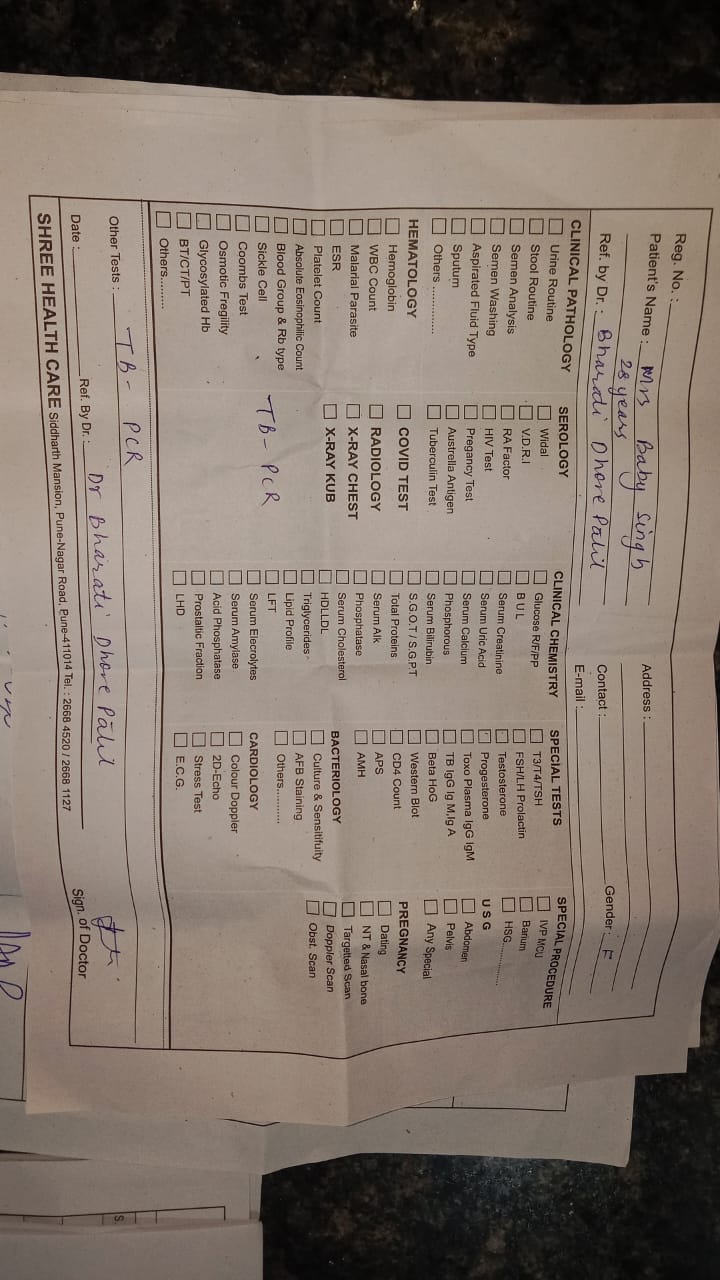 Reg. No. :
Patient's Name : Mrs Baby Singh
28 years
Ref. by Dr. : Bharati Dhore Patil
Address :
Contact : Gender : F
E-mail :
CLINICAL PATHOLOGY
Urine Routine
Stool Routine
Semen Analysis
Semen Washing
Aspirated Fluid Type
Sputum
Others .............
HEMATOLOGY
Hemoglobin
WBC Count
Malarial Parasite
ESR
Platelet Count
Absolute Eosinophilic Count
Blood Group & Rb type
Sickle Cell
Coombs Test
Osmotic Fregility
Glycosylated Hb
BT/CT/PT
Others..........
SEROLOGY
Widal
V.D.R.I
RA Factor
HIV Test
Pregancy Test
Austrella Antigen
Tuberculin Test
COVID TEST
RADIOLOGY
X-RAY CHEST
X-RAY KUB
TB- PCR
CLINICAL CHEMISTRY
Glucose R/F/PP
B U L
Serum Creatinine
Serum Uric Acid
Serum Calcium
Phosphorous
Serum Bilirubin
S.G.O.T / S.G.P.T
Total Proteins
Serum Alk
Phosphatase
Serum Cholesterol
HDLLDL
Triglycerides
Lipid Profile
LFT
Serum Elecrolytes
Serum Amylase
Acid Phosphatase
Prostaltic Fraction
LHD
SPECIAL TESTS
T3/T4/TSH
FSH/LH Prolactin
Testosterone
Progesterone
Toxo Plasma IgG IgM
TB IgG Ig M,Ig A
Beta HoG
Western Blot
CD4 Count
APS
AMH
BACTERIOLOGY
Culture & Sensitifuity
AFB Staining
Others..........
CARDIOLOGY
Colour Doppler
2D-Echo
Stress Test
E.C.G.
SPECIAL PROCEDURE
IVP MCU
Barium
HSG................
U S G
Abdomen
Pelvis
Any Special
PREGNANCY
Dating
NT & Nasal bone
Targetted Scan
Doppler Scan
Obst. Scan
Other Tests : TB- PCR
Date : Ref. By Dr.: Dr Bharati Dhore Patil Sign. of Doctor
SHREE HEALTH CARE Siddharth Mansion, Pune-Nagar Road, Pune-411014 Tel. : 2668 4520 / 2668 1127